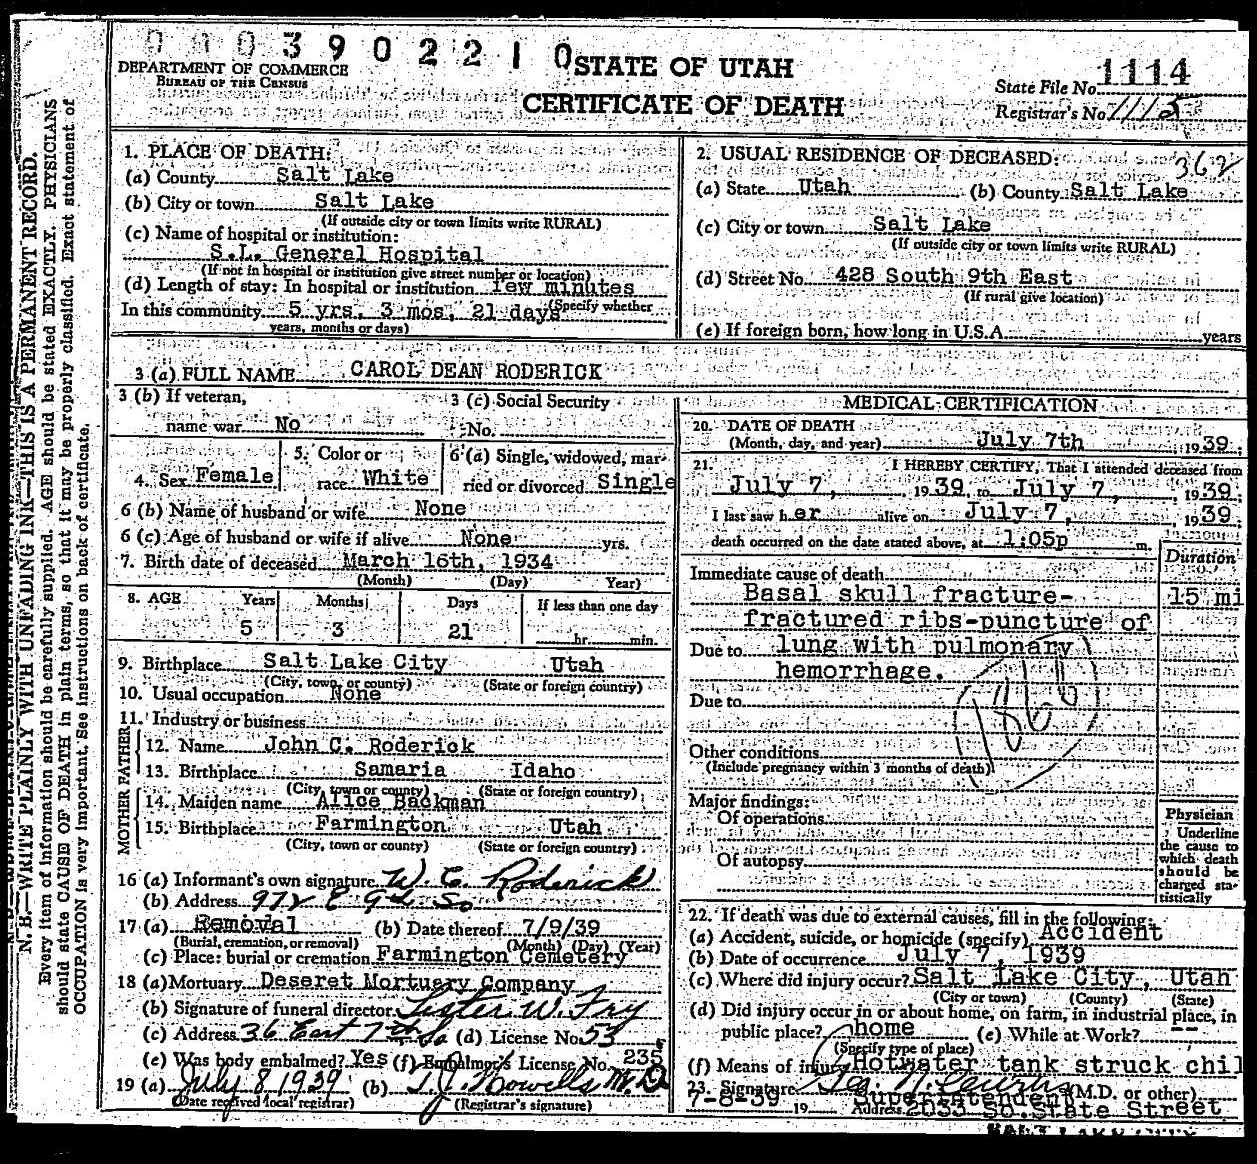 0003902210
DEPARTMENT OF COMMERCE
BUREAU OF THE CENSUS
STATE OF UTAH
CERTIFICATE OF DEATH
State File No. 1114
Registrar's No. 1115
1. PLACE OF DEATH:
(a) County Salt Lake
(b) City or town Salt Lake
(If outside city or town limits write RURAL)
(c) Name of hospital or institution:
S.L. General Hospital
(If not in hospital or institution give street number or location)
(d) Length of stay: In hospital or institution few minutes
In this community 5 yrs. 3 mos, 21 days (Specify whether
years, months or days)
2. USUAL RESIDENCE OF DECEASED:
362
(a) State Utah (b) County Salt Lake
(c) City or town Salt Lake
(If outside city or town limits write RURAL)
(d) Street No. 428 South 9th East
(If rural give location)
(e) If foreign born, how long in U.S.A. years
3 (a) FULL NAME CAROL DEAN RODERICK
3 (b) If veteran,
name war No
3 (c) Social Security
No.
4. Sex Female
5. Color or
race White
6 (a) Single, widowed, mar-
ried or divorced Single
6 (b) Name of husband or wife None
6 (c) Age of husband or wife if alive None yrs.
7. Birth date of deceased March 16th, 1934
(Month) (Day) Year)
8. AGE Years Months Days If less than one day
5 3 21 hr. min.
9. Birthplace Salt Lake City Utah
(City, town, or county) (State or foreign country)
10. Usual occupation None
11. Industry or business
FATHER
12. Name John C. Roderick
13. Birthplace Samaria Idaho
(City, town or county) (State or foreign country)
MOTHER
14. Maiden name Alice Backman
15. Birthplace Farmington Utah
(City, town or county) (State or foreign country)
16 (a) Informant's own signature W. C. Roderick
(b) Address 972 E 9th So
17 (a) Removal (b) Date thereof 7/9/39
(Burial, cremation, or removal) (Month) (Day) (Year)
(c) Place: burial or cremation Farmington Cemetery
18 (a) Mortuary Deseret Mortuary Company
(b) Signature of funeral director Lester W. Fry
(c) Address 36 East 7th So (d) License No. 53
(e) Was body embalmed? Yes (f) Embalmer's License No. 235
19 (a) July 8 1939 (b) T. J. Howells M.D
(Date received local registrar) (Registrar's signature)
MEDICAL CERTIFICATION
20. DATE OF DEATH
(Month, day, and year) July 7th 1939.
21. I HEREBY CERTIFY, That I attended deceased from
July 7, 1939 to July 7, 1939.
I last saw her alive on July 7, 1939.
death occurred on the date stated above, at 1:05p m.
Duration
Immediate cause of death
Basal skull fracture- 15 mi
fractured ribs-puncture of
Due to lung with pulmonary
hemorrhage.
Due to
Other conditions
(Include pregnancy within 3 months of death)
Major findings:
Of operations
Of autopsy
Physician
Underline
the cause to
which death
should be
charged sta-
tistically
22. If death was due to external causes, fill in the following:
(a) Accident, suicide, or homicide (specify) Accident
(b) Date of occurrence July 7, 1939
(c) Where did injury occur? Salt Lake City, Utah
(City or town) (County) (State)
(d) Did injury occur in or about home, on farm, in industrial place, in
public place? home (e) While at Work? --
(Specify type of place)
(f) Means of injury Hotwater tank struck chil
23. Signature (M.D. or other)
Superintendent
7-8-39 19 Address 2033 So. State Street
SALT LAKE CITY
N. B.—WRITE PLAINLY WITH UNFADING INK—THIS IS A PERMANENT RECORD.
Every item of information should be carefully supplied. AGE should be stated EXACTLY. PHYSICIANS
should state CAUSE OF DEATH in plain terms, so that it may be properly classified. Exact statement of
OCCUPATION is very important. See instructions on back of certificate.